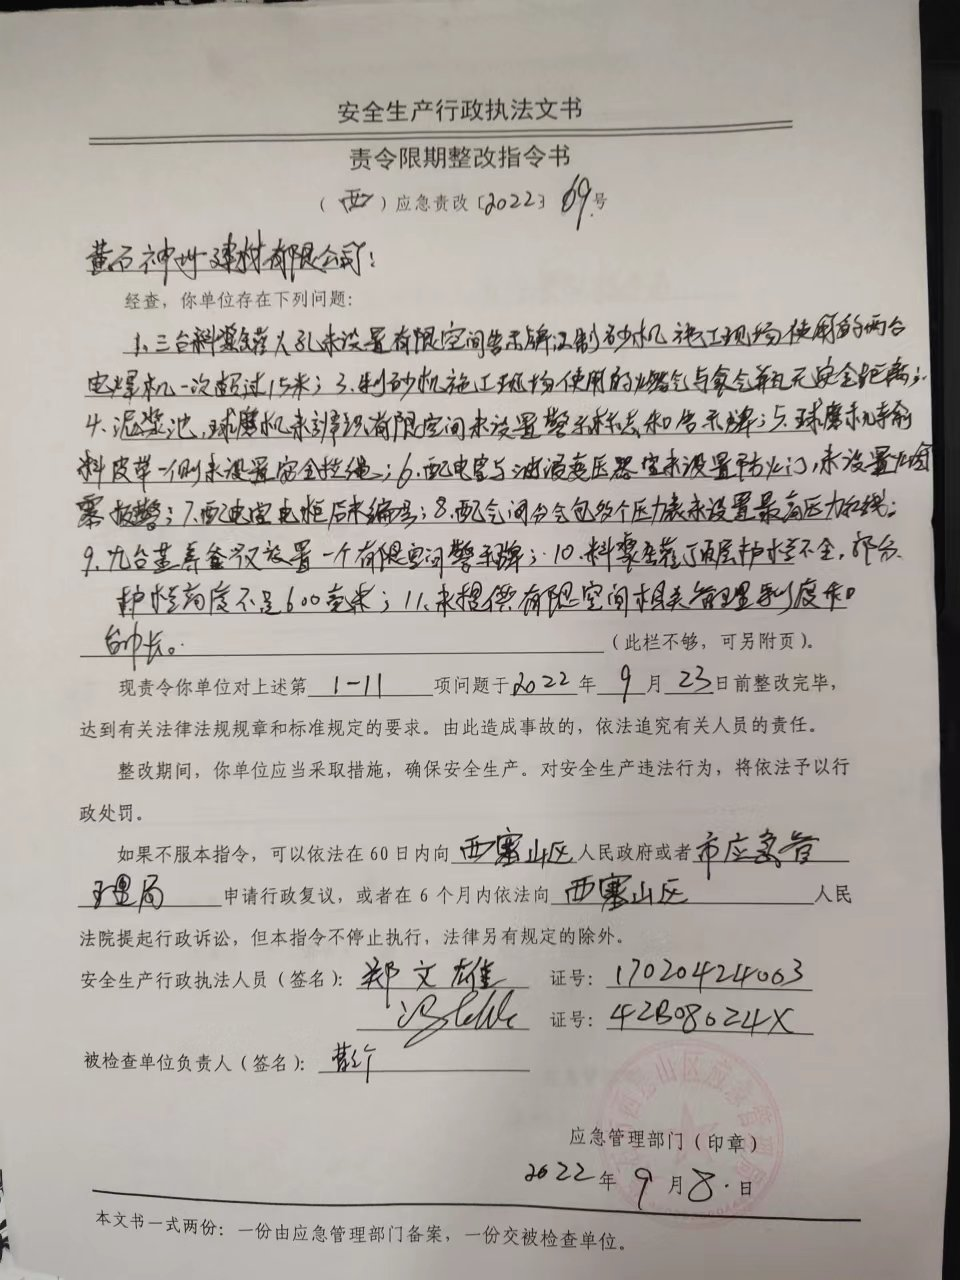 安全生产行政执法文书
责令限期整改指令书
（西）应急责改〔2022〕69号
黄石神州建材有限公司：
经查，你单位存在下列问题：
1、三台料浆罐人孔未设置有限空间告示牌；2制砂机施工现场使用的两台
电焊机一次超过15米；3.制砂机施工现场使用的燃气与氧气瓶无安全距离；
4.泥浆池、球磨机未辨识有限空间未设置警示标志和告示牌；5.球磨机传输
料皮带一侧未设置安全拉绳；6.配电室与油浸变压器室未设置防火门，未设置火灾
报警；7.配电室电柜后未编号；8.配气间分气包多个压力表未设置最高压力红线；
9.九台蒸养釜仅设置一个有限空间警示牌；10.料浆罐顶层护栏不全，部分
护栏高度不足600毫米；11.未提供有限空间相关管理制度和
台帐。（此栏不够，可另附页）。
现责令你单位对上述第 1-11 项问题于2022年9月23日前整改完毕，
达到有关法律法规规章和标准规定的要求。由此造成事故的，依法追究有关人员的责任。
整改期间，你单位应当采取措施，确保安全生产。对安全生产违法行为，将依法予以行
政处罚。
如果不服本指令，可以依法在60日内向 西塞山区 人民政府或者 市应急管
理局 申请行政复议，或者在6个月内依法向 西塞山区 人民
法院提起行政诉讼，但本指令不停止执行，法律另有规定的除外。
安全生产行政执法人员（签名）：郑文雄 证号：17020424003
证号：42B08024X
被检查单位负责人（签名）：
应急管理部门（印章）
2022年9月8日
本文书一式两份：一份由应急管理部门备案，一份交被检查单位。